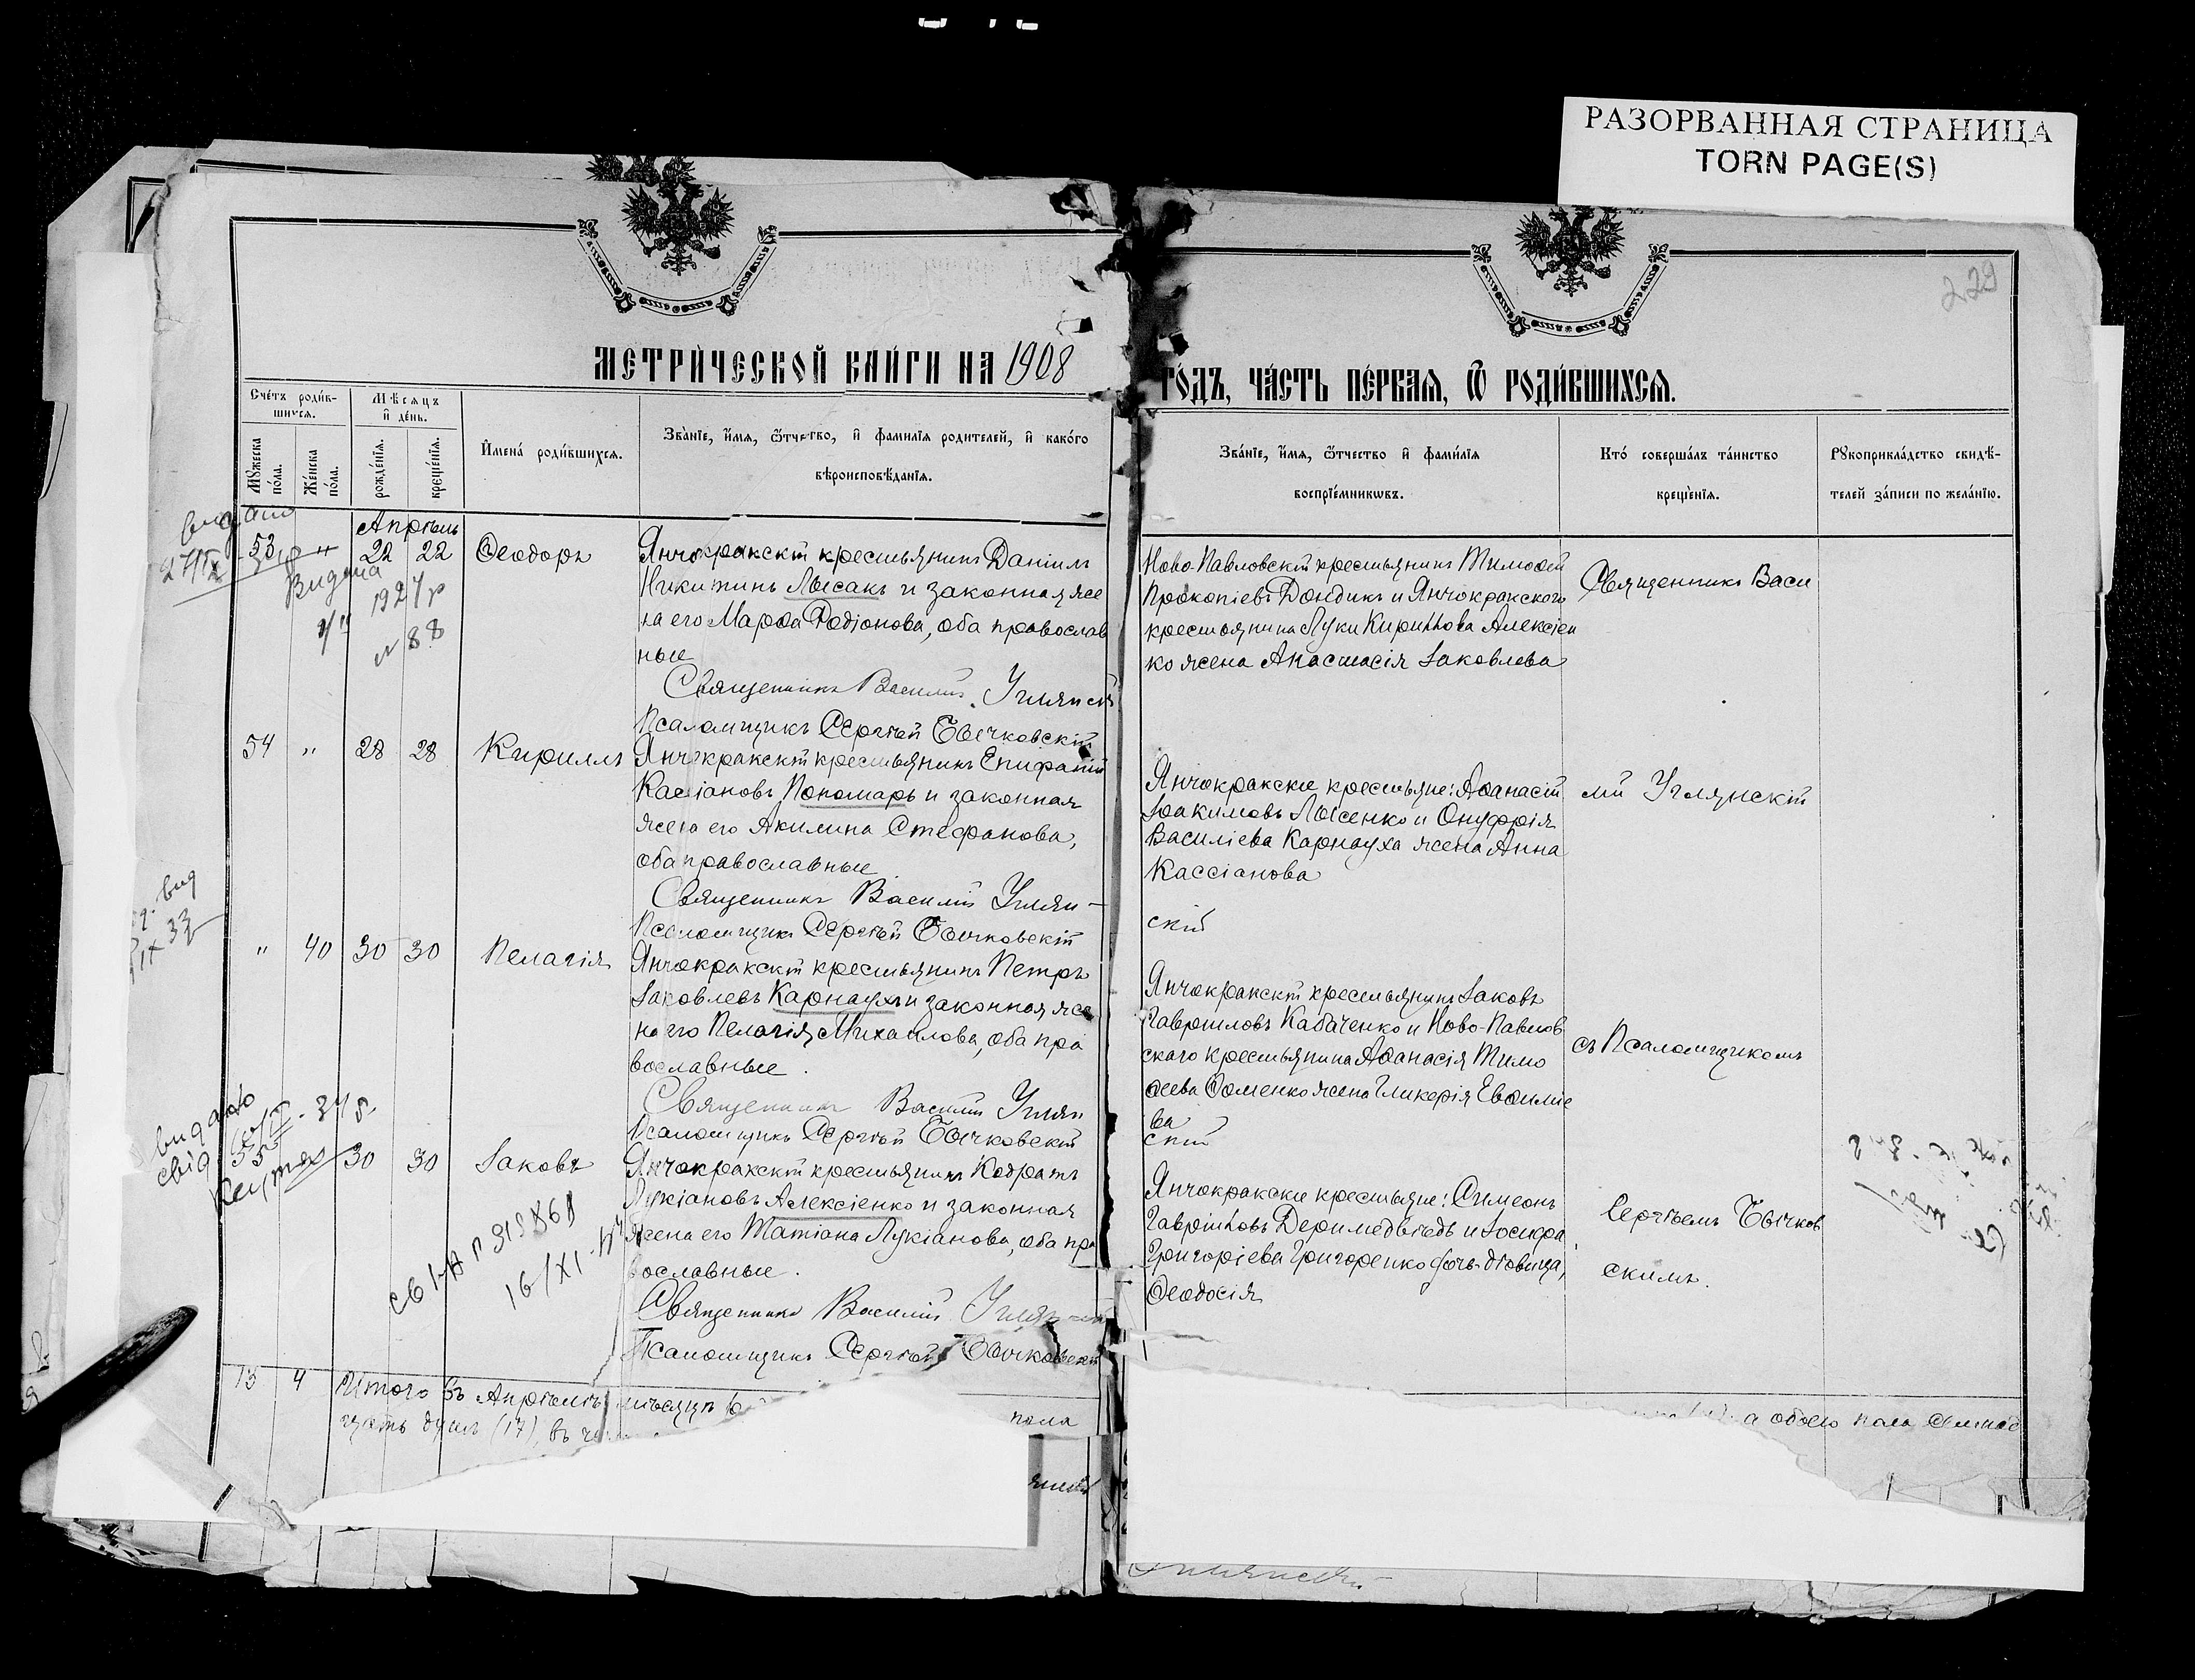 РАЗОРВАННАЯ СТРАНИЦА
TORN PAGE(S)
229
МЕТРИ́ЧЕСКОЙ КНИ́ГИ НА 1908
ГО́ДЪ, ЧА́СТЬ ПЕ́РВАЯ, Ѡ РОДИ́ВШИХСЯ.
Сче́тъ роди́в-
шихся.
Мѣ́сяцъ
и де́нь.
Мꙋ́жеска
по́ла.
Же́нска
по́ла.
рожде́нїя.
креще́нїя.
И́мена́ роди́вшихся.
Зва́нїе, и́мя, ѿтчество, и фами́лїя роди́телей, и како́го
вѣроисповѣ́данїя.
Зва́нїе, и́мя, ѿтчество и фами́лїя
воспрїе́мникѡвъ.
Кто́ соверша́лъ та́инство
креще́нїя.
Рꙋкоприкла́дство свидѣ́-
телей за́писи по жела́нїю.
Апрѣль
53 " 22 22 Ѳеодоръ
Янчокракскій крестьянинъ Даніилъ
Никитинъ Лысакъ и законная же
на его Марѳа Родіонова, оба православ
ные
Священникъ Василій Углянскій
Псаломщикъ Сергѣй Бычковскій
Ново-Павловскій крестьянинъ Тимоѳей
Прокопіевъ Дондикъ и Янчокракского
крестьянина Луки Кириллова Алексіен
ко жена Анастасія Іаковлева
Священникъ Васи
Видана
1927 р
№ 88
54 " 28 28 Кириллъ
Янчокракскій крестьянинъ Епифаній
Касіановъ Пономарь и законная
жена его Акилина Стефанова,
оба православные
Священникъ Василій Углян-
Псаломщикъ Сергѣй Бычковскій
Янчокракскіе крестьяне: Аѳанасій
Іоакимовъ Лысенко и Онуфрія
Василіева Карнауха жена Анна
Кассіанова
скій
лій Углянскій
" 40 30 30 Пелагія
Янчокракскій крестьянинъ Петръ
Іаковлевъ Карнаухъ и законная же
на его Пелагія Михаилова, оба пра
вославные.
Священникъ Василій Углян
Псаломщикъ Сергѣй Бычковскій
Янчокракскій крестьянинъ Іаковъ
Гавріиловъ Кабаченко и Ново-Павлов
скаго крестьянина Аѳанасія Тимо
ѳеева Фоменко жена Гликерія Евѳиміе
ва
скій
съ Псаломщикомъ
55 30 30 Іаковъ
Янчокракскій крестьянинъ Кодратъ
Лукіановъ Алексіенко и законная
жена его Татіана Лукіанова, оба пра
вославные.
Священникъ Василій Углян
Псаломщикъ Сергѣй Бычковскій
Янчокракскіе крестьяне: Симеонъ
Гавріиловъ Деримедвѣдь и Іосифа
Григоріева Григоренко дочь-дѣвица,
Ѳеодосія
Сергѣемъ Бычков
скимъ.
16/XI
13 4 Итого въ Апрѣлѣ мѣсяцѣ
цать душъ (17), въ
пола
а обоего пола семнад